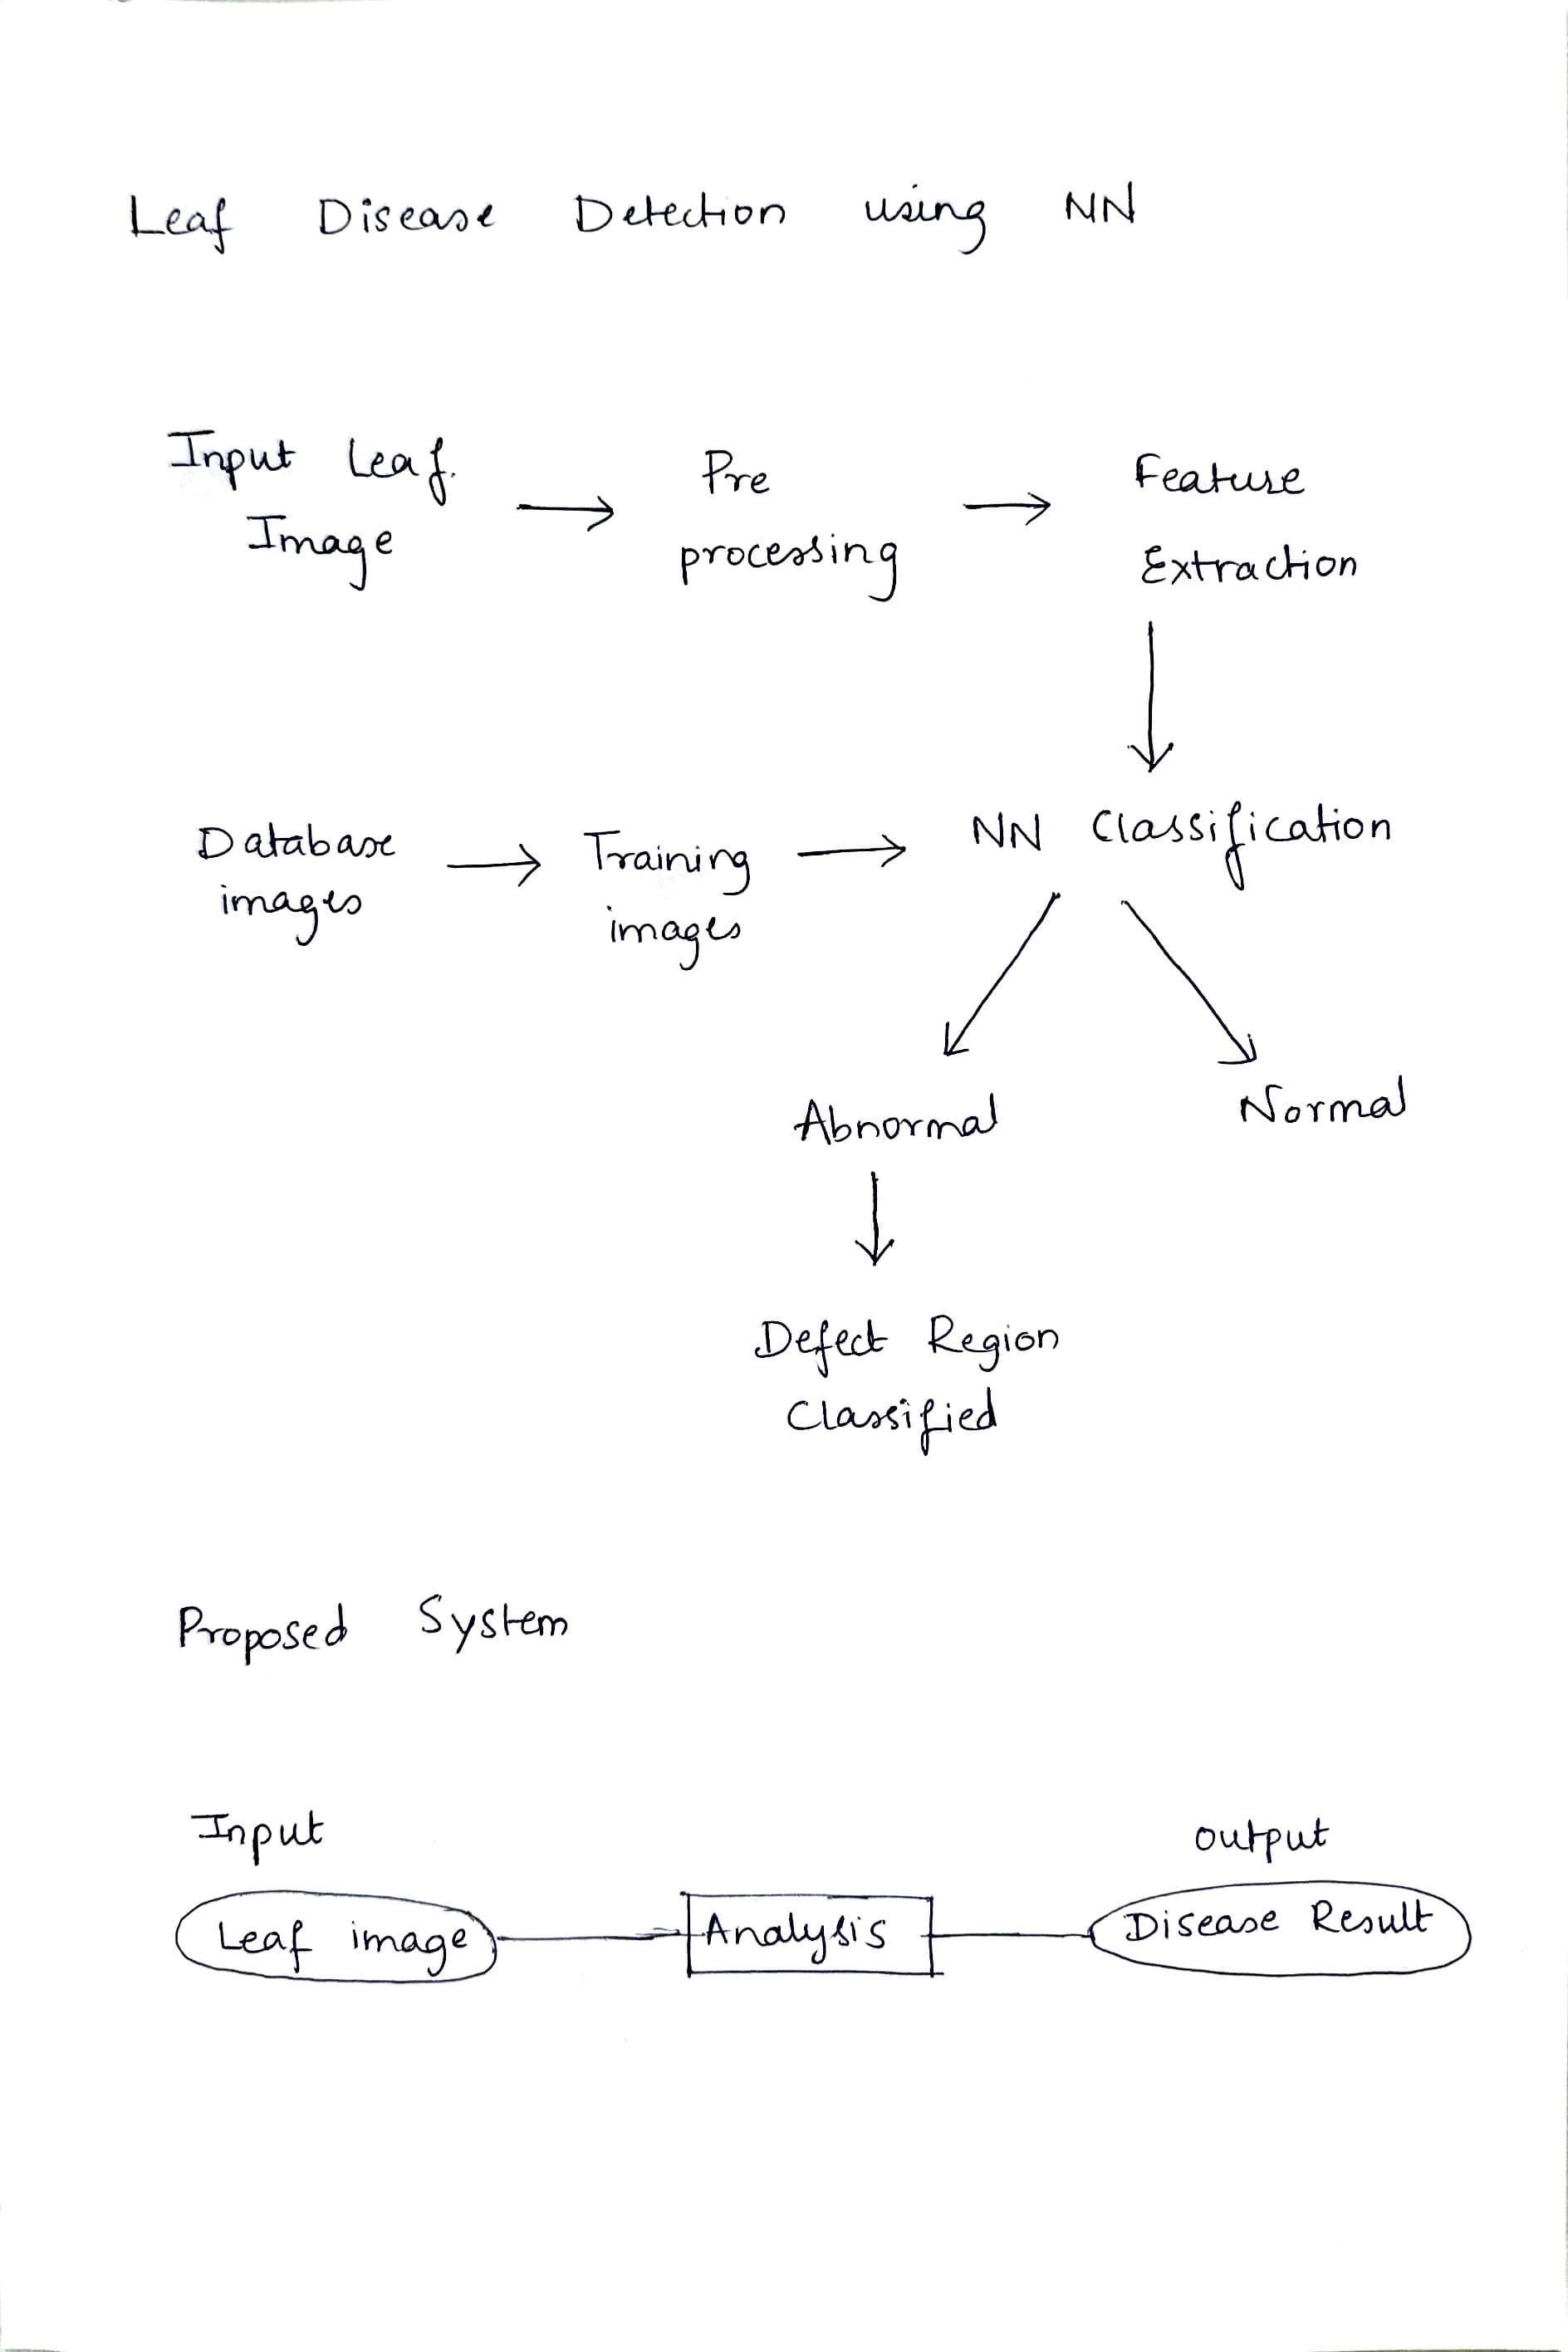 Leaf Disease Detection using NN
Input Leaf.
Image
Pre
processing
Feature
Extraction
Database
images
Training
images
NN Classification
Abnormal
Normal
Defect Region
Classified
Proposed System
Input
output
Leaf image
Analysis
Disease Result